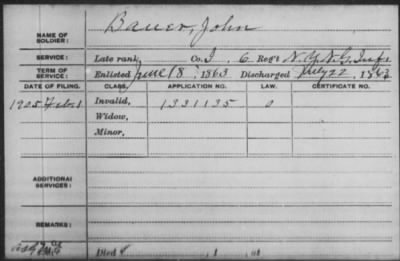 NAME OF SOLDIER: Bauer, John
SERVICE: Late rank, Co. I, 6 Reg't N.Y.N.G. Inf.
TERM OF SERVICE: Enlisted June 18, 1863 Discharged July 22, 1863
DATE OF FILING. CLASS. APPLICATION NO. LAW. CERTIFICATE NO.
1905 Feb. 1 Invalid, 1331135 0
Widow,
Minor,
ADDITIONAL SERVICES:
REMARKS:
Died , 1 , at